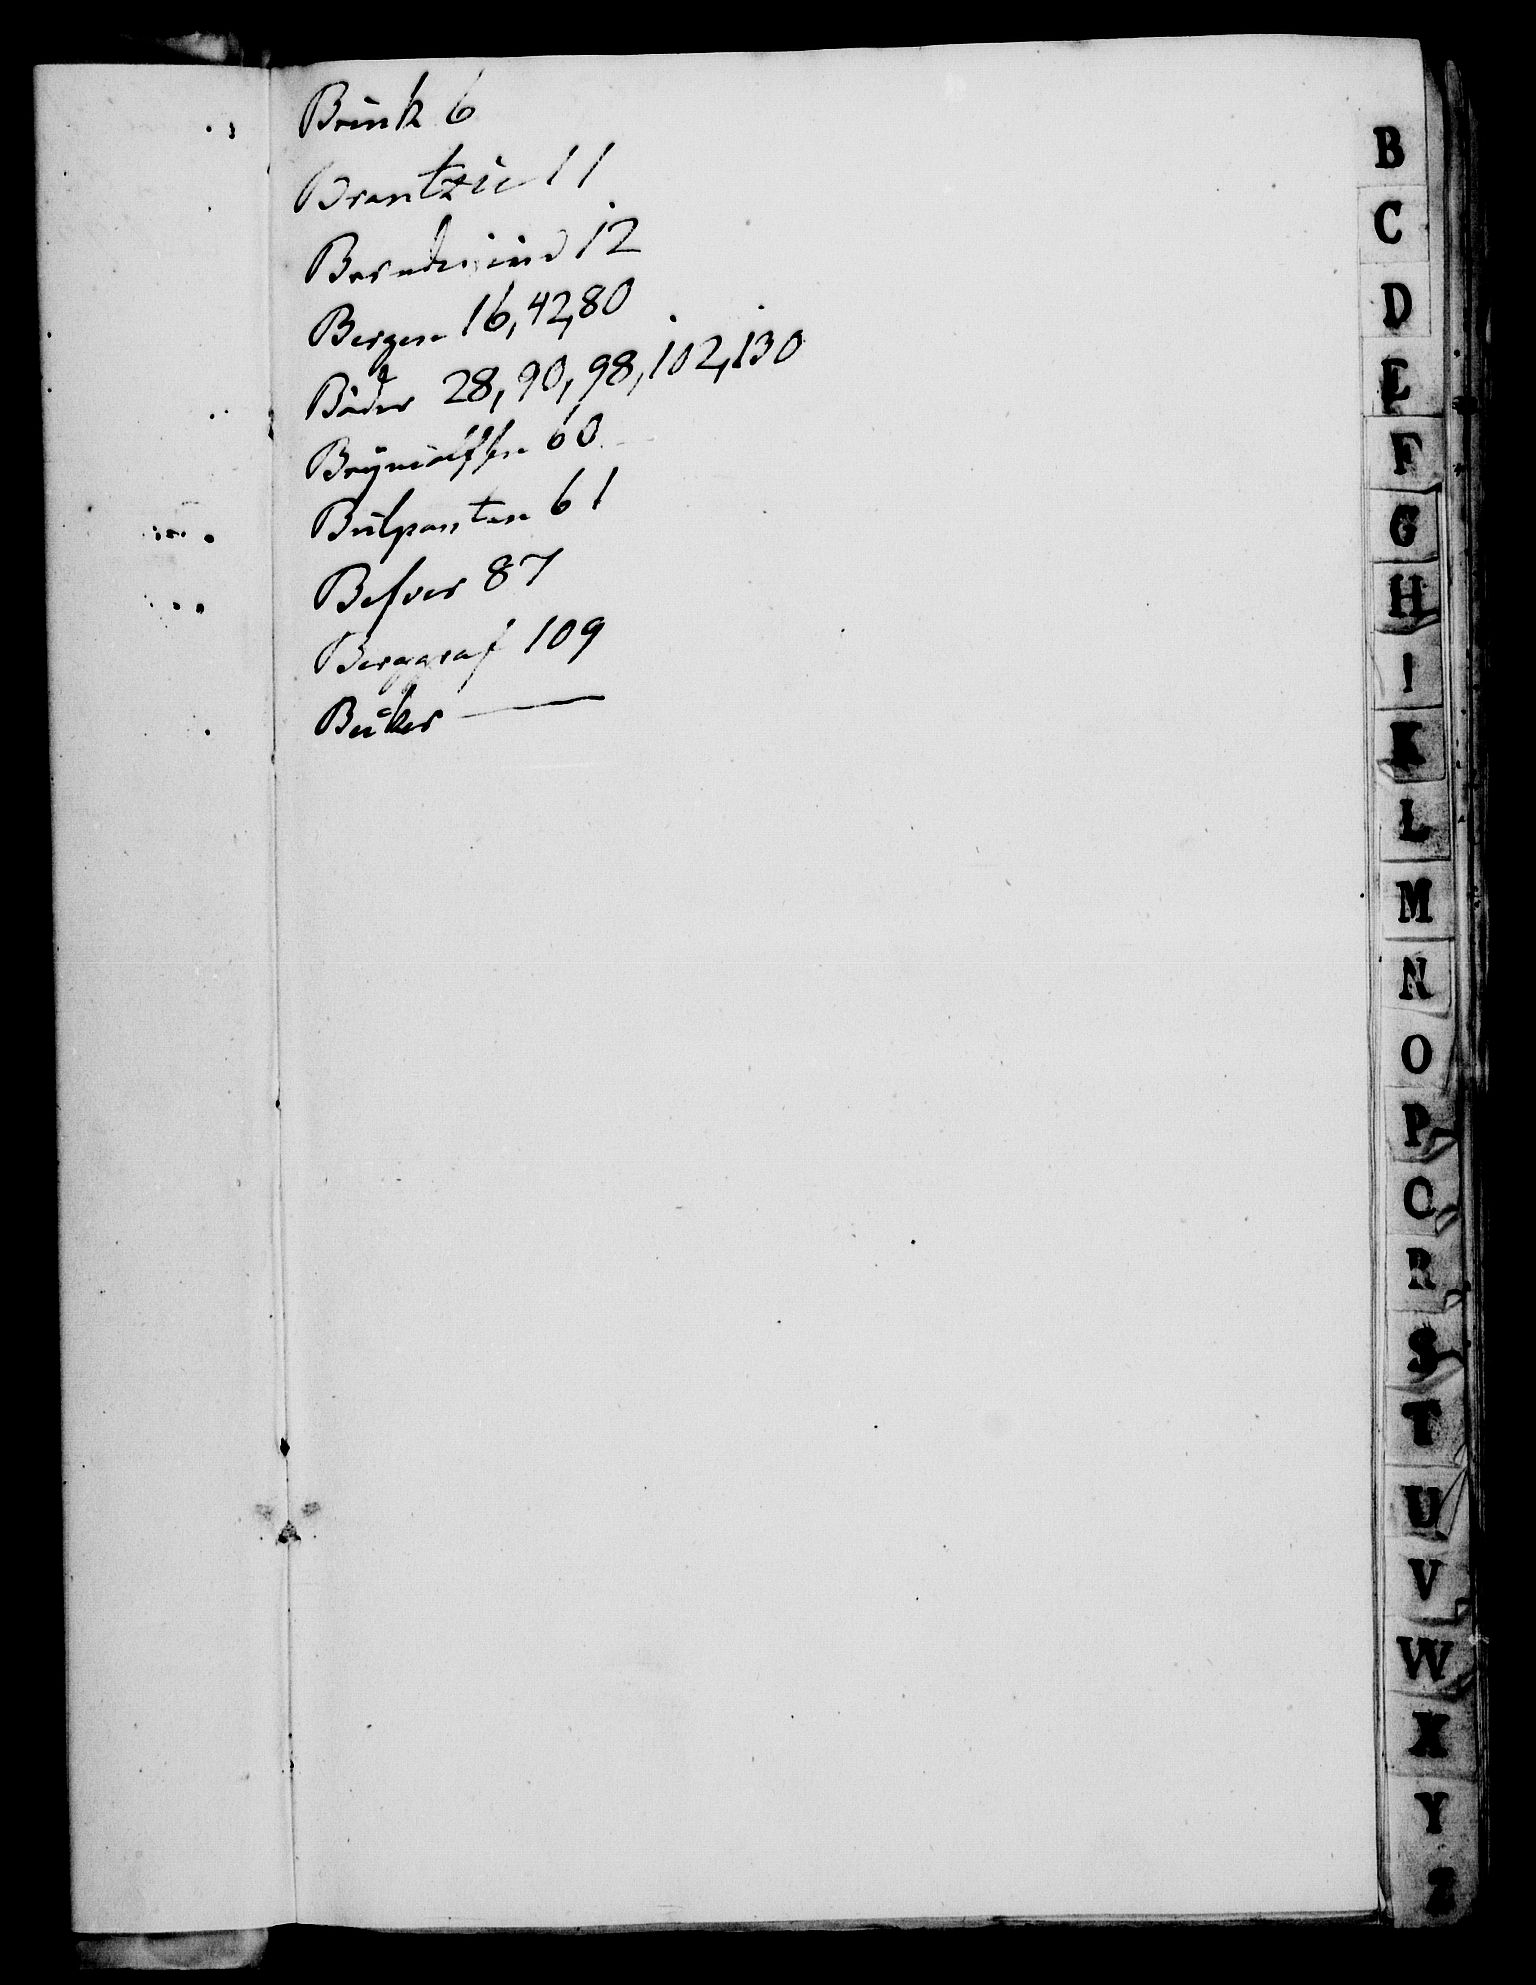 Brink 6
Brantzie 11
12
Bergen 16,42,80
Bäder 28,90,98,102,130
60
Bulpanten 61
Besver 87
Berggraf 109
Buiker —
B
C
D
E
F
G
H
I
K
L
M
N
O
P
Q
R
S
T
U
V
W
X
Y
Z